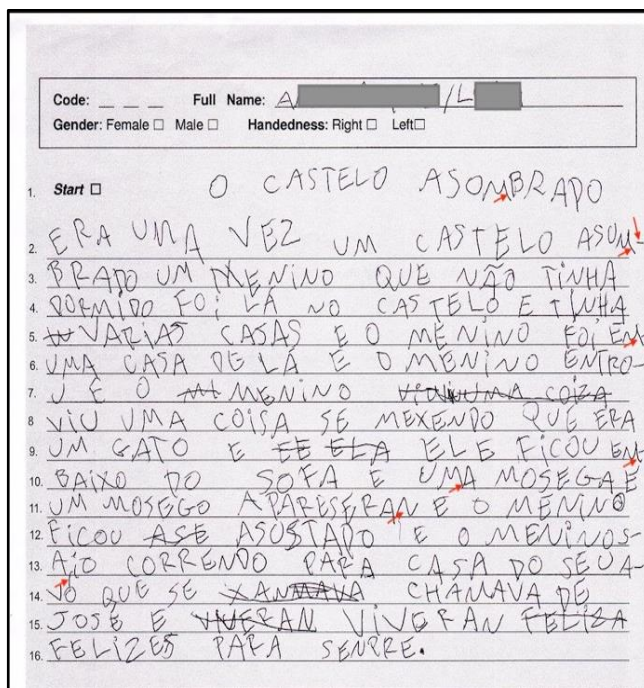 Code: _ _ _ Full Name: A /L
Gender: Female □ Male □ Handedness: Right □ Left□
1. Start □ O CASTELO ASOMBRADO
2. ERA UMA VEZ UM CASTELO ASUM-
3. BRADO UM MENINO QUE NÃO TINHA
4. DORMIDO FOI LÁ NO CASTELO E TINHA
5. VARIAS CASAS E O MENINO FOI EM
6. UMA CASA DE LA E O MENINO ENTRO-
7. U E O MI MENINO VIU UMA COIZA
8 VIU UMA COISA SE MEXENDO QUE ERA
9. UM GATO E EE ELA ELE FICOU EN
10. BAIXO DO SOFA E UMA MOSEGA E
11. UM MOSEGO APARESERAN E O MENINO
12. FICOU ASE ASUSTADO E O MENINO S-
13. AIO CORRENDO PARA CASA DO SEU A-
14. VO QUE SE XAMAVA CHAMAVA DE
15. JOSÉ E VIVERAN VIVERAN FELIZA
16. FELIZES PARA SENPRE.